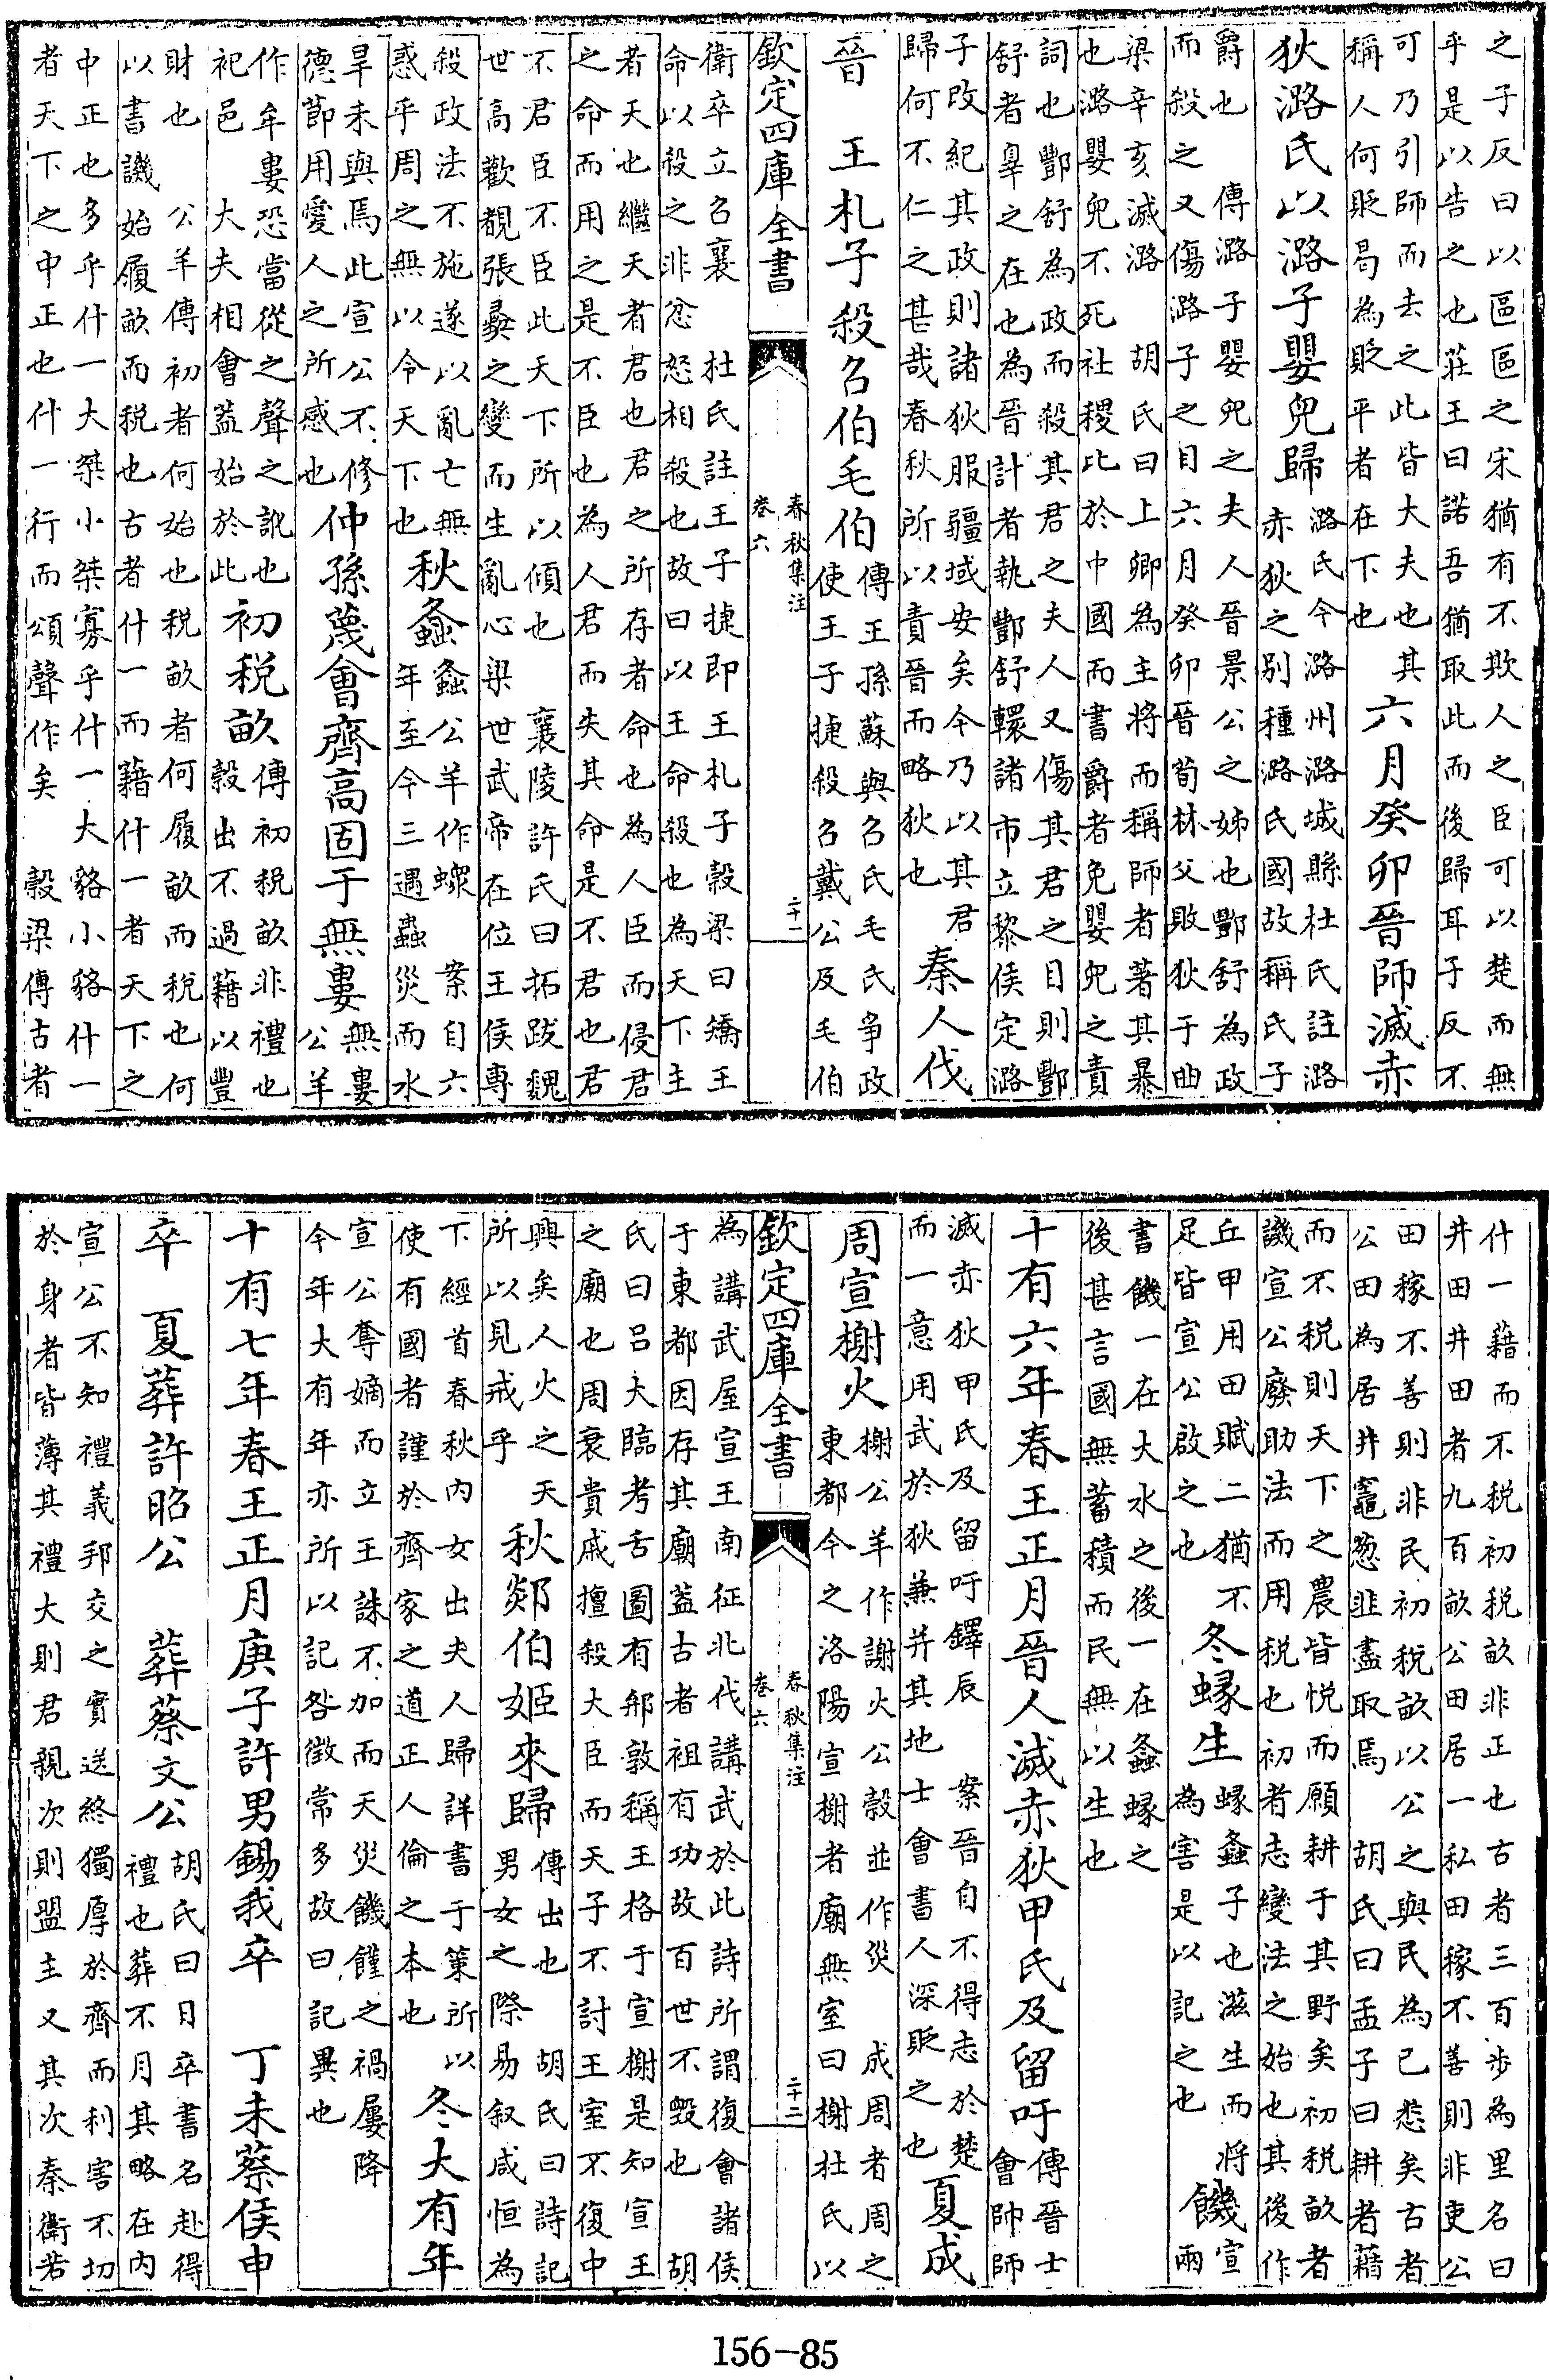 之子反曰以區區之宋猶有不欺人之臣可以楚而無
乎是以告之也莊王曰諾吾猶取此而後歸耳子反不
可乃引師而去之此皆大夫也其
稱人何貶曷為貶平者在下也
六月癸卯晉師滅赤
狄潞氏以潞子嬰兒歸
潞氏今潞州潞城縣杜氏註潞
赤狄之别種潞氏國故稱氏子
爵也 傳潞子嬰兒之夫人晉景公之姊也酆舒為政
而殺之又傷潞子之目六月癸卯晉荀林父敗狄于曲
梁辛亥滅潞 胡氏曰上卿為主將而稱師者著其暴
也潞嬰兒不死社稷比於中國而書爵者免嬰兒之責
詞也酆舒為政而殺其君之夫人又傷其君之目則酆
舒者辠之在也為晉計者執酆舒轘諸市立黎侯定潞
子改紀其政則諸狄服疆域安矣今乃以其君
歸何不仁之甚哉春秋所以責晉而略狄也
秦人伐
晉 王札子殺召伯毛伯
傳王孫蘇與召氏毛氏爭政
使王子捷殺召戴公及毛伯
欽定四庫全書
春秋集注
卷六
二十一
衛卒立召襄 杜氏註王子捷即王札子穀梁曰矯王
命以殺之非忿怒相殺也故曰以王命殺也為天下主
者天也繼天者君也君之所存者命也為人臣而侵君
之命而用之是不臣也為人君而失其命是不君也君
不君臣不臣此天下所以傾也 襄陵許氏曰拓跋魏
世高歡覩張彞之變而生亂心梁世武帝在位王侯專
殺政法不施遂以亂亡無
惑乎周之無以令天下也
秋螽
螽公羊作蟓 案自六
年至今三遇蟲災而水
旱未與焉此宣公不修
德節用愛人之所感也
仲孫蔑會齊高固于無婁
無婁
公羊
作牟婁恐當從之聲之訛也
祀邑 大夫相會蓋始於此
初税畝
傳初税畝非禮也
穀出不過藉以豐
財也 公羊傳初者何始也税畝者何履畝而税也何
以書譏始履畝而税也古者什一而藉什一者天下之
中正也多乎什一大桀小桀寡乎什一大貉小貉什一
者天下之中正也什一行而頌聲作矣 穀梁傳古者
什一藉而不税初税畝非正也古者三百步為里名曰
井田井田者九百畝公田居一私田稼不善則非吏公
田稼不善則非民初税畝以公之與民為已悉矣古者
公田為居井竈葱韭盡取焉 胡氏曰孟子曰耕者藉
而不税則天下之農皆悦而願耕于其野矣初税畝者
譏宣公廢助法而用税也初者志變法之始也其後作
丘甲用田賦二猶不
足皆宣公啟之也
冬蝝生
蝝螽子也滋生而将
為害是以記之也
饑
宣
兩
書饑一在大水之後一在螽蝝之
後甚言國無蓄積而民無以生也
十有六年春王正月晉人滅赤狄甲氏及留吁
傳晉士
會帥師
滅赤狄甲氏及留吁鐸辰 案晉自不得志於楚
而一意用武於狄兼并其地士會書人深貶之也
夏成
周宣榭火
榭公羊作謝火公穀並作災 成周者周之
東都今之洛陽宣榭者廟無室曰榭杜氏以
欽定四庫全書
春秋集注
卷六
二十二
為講武屋宣王南征北伐講武於此詩所謂復會諸侯
于東都因存其廟蓋古者祖有功故百世不毀也 胡
氏曰吕大臨考古圖有邢敦稱王格于宣榭是知宣王
之廟也周衰貴戚擅殺大臣而天子不討王室不復中
興矣人火之天
所以見戒乎
秋郯伯姬來歸
傳出也 胡氏曰詩記
男女之際易叙咸恒為
下經首春秋內女出夫人歸詳書于策所以
使有國者謹於齊家之道正人倫之本也
冬大有年
宣公奪嫡而立王誅不加而天災饑饉之禍屢降
今年大有年亦所以記咎徵常多故曰記異也
十有七年春王正月庚子許男錫我卒 丁未蔡侯申
卒 夏葬許昭公 葬蔡文公
胡氏曰日卒書名赴得
禮也葬不月其略在内
宣公不知禮義邦交之實送終獨厚於齊而利害不切
於身者皆薄其禮大則君親次則盟主又其次秦衛若
156-85